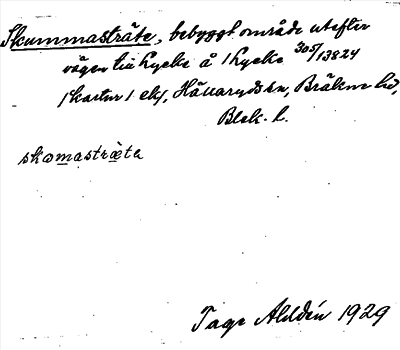 Skummasträte, bebyggt område utefter
vägen till Lycke å 1 Lycke 305/13824
(kartur) ekf, Hällaryds sn, Bräkne hd,
Blek. l.
skomasträta
Tage Aldén 1929